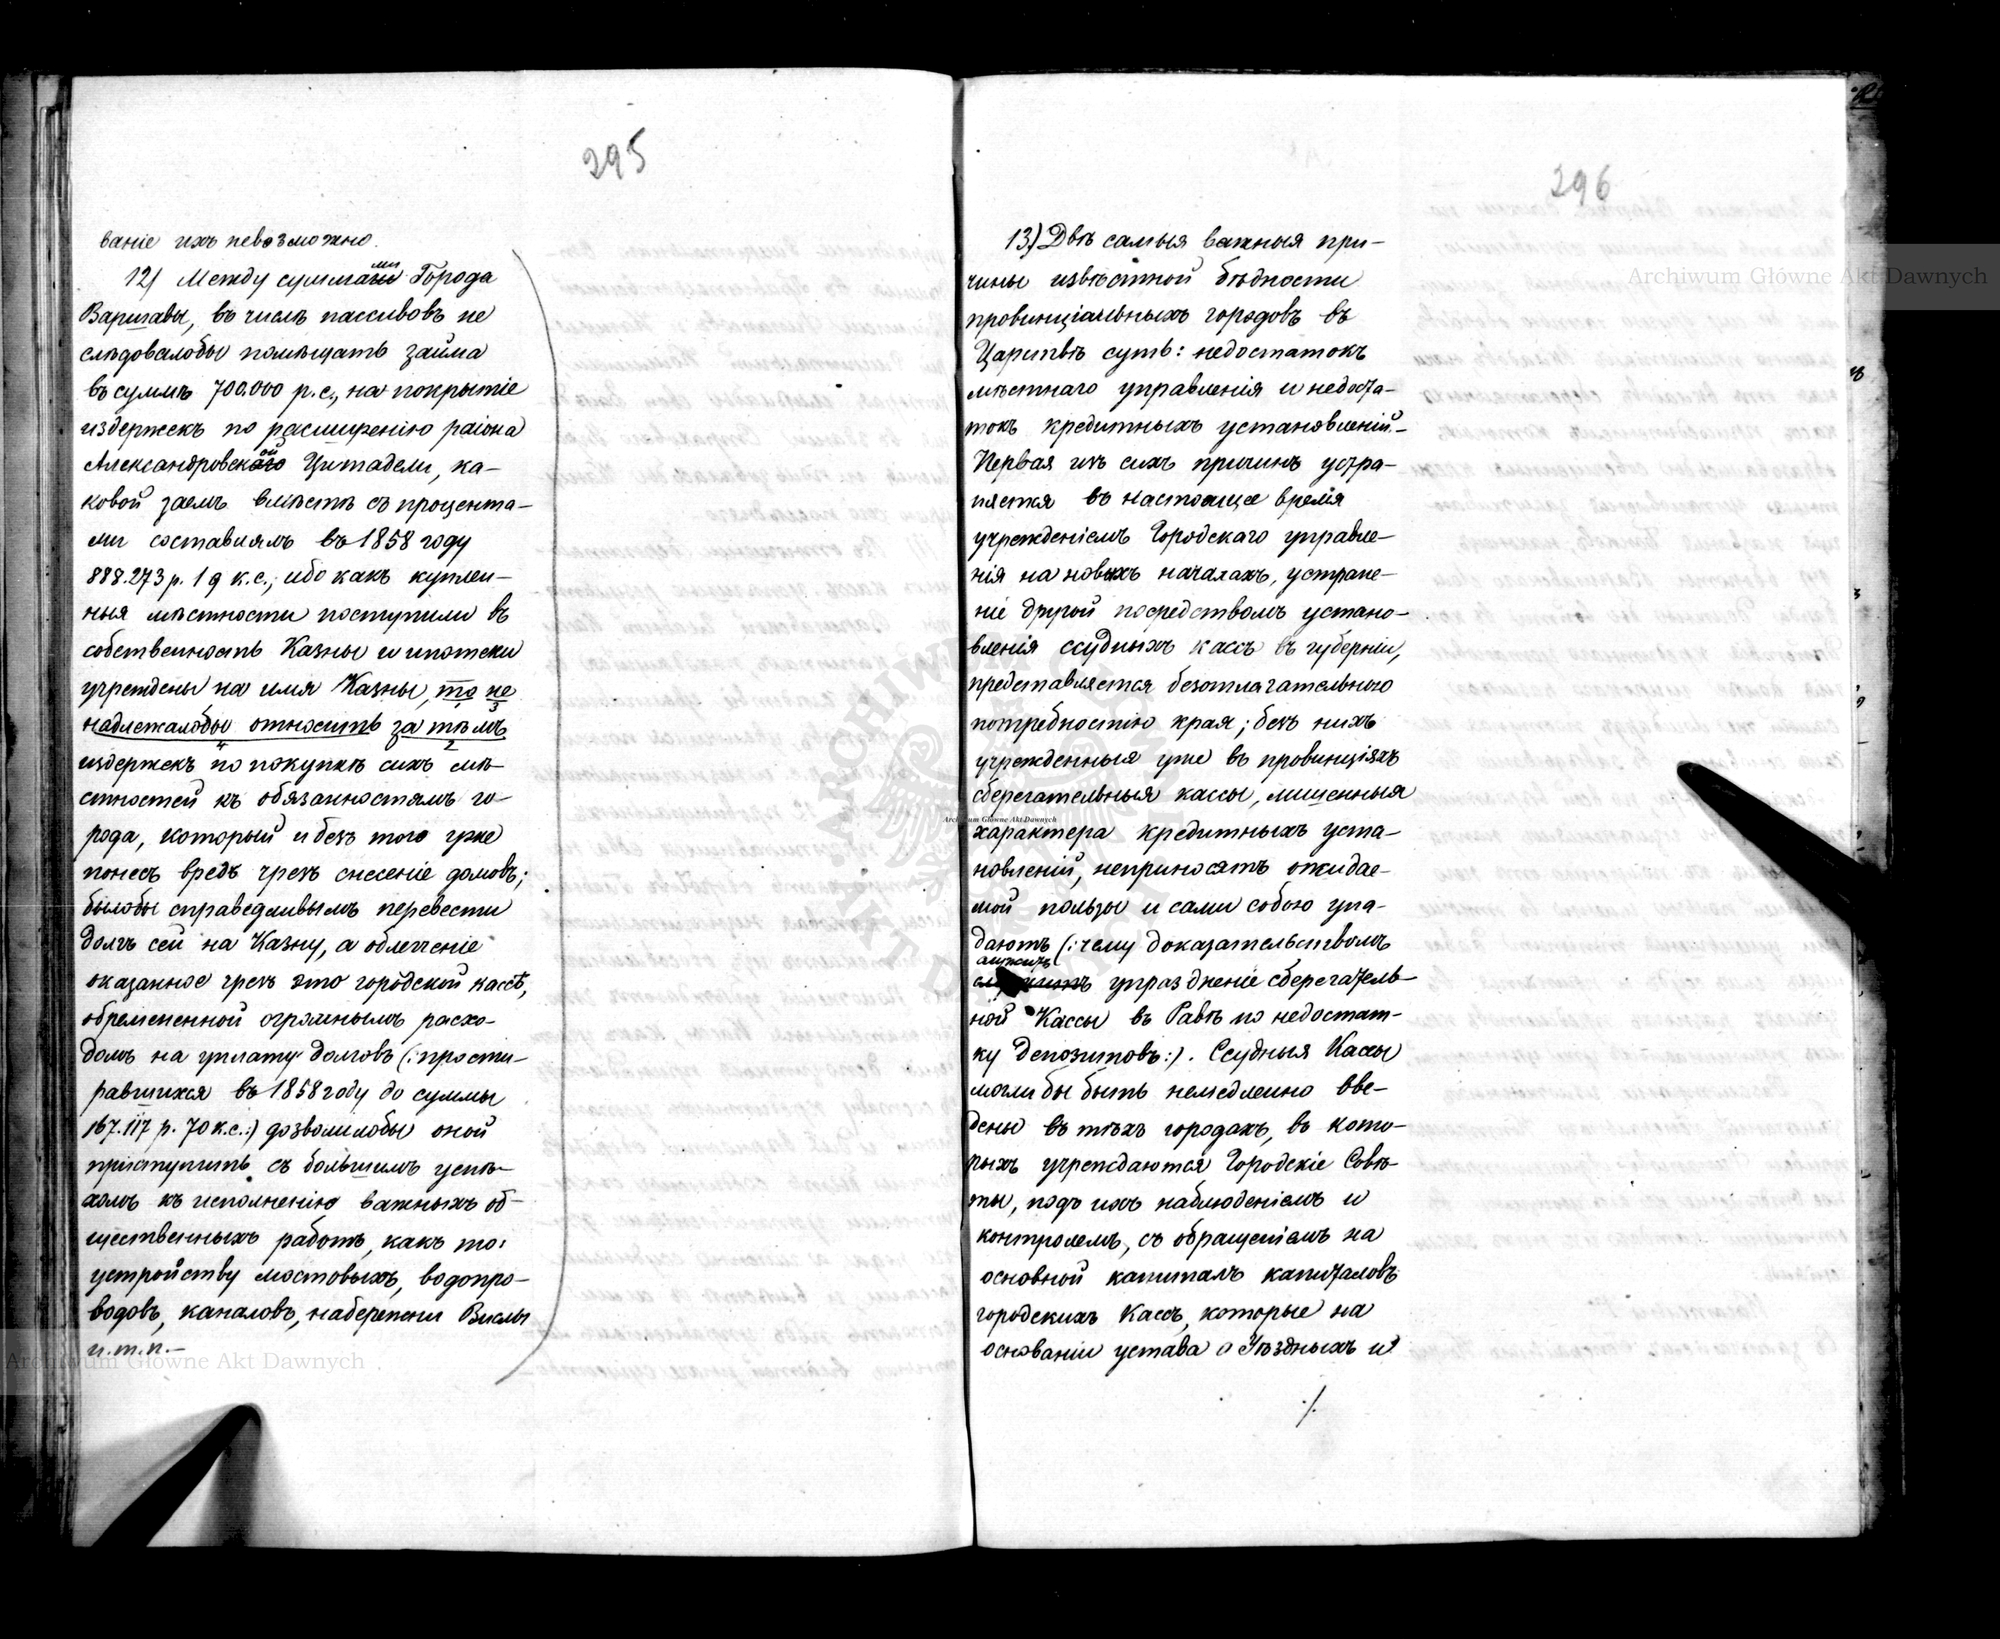 295
ваніе ихъ невозможно.
12) Между суммами Города
Варшавы, въ числѣ пассивовъ не
слѣдовалобы помѣщать займа
въ суммѣ 700.000 р. с., на покрытіе
издержекъ по расширенію раіона
Александровской Цитадели, ка-
ковой заемъ вмѣстѣ съ процента-
ми составлялъ въ 1858 году
888.273 р. 19 к. с.; ибо какъ куплен-
ныя мѣстности поступили въ
собственность Казны и ипотеки
учреждены на имя Казны, то не
надлежалобы относить за тѣмъ
издержекъ по покупкѣ сихъ мѣ-
стностей къ обязанностямъ го-
рода, который и безъ того уже
понесъ вредъ чрезъ снесеніе домовъ;
былобы справедливымъ перевести
долгъ сей на Казну, а облегченіе
оказанное чрезъ это городской кассѣ,
обремененной огромнымъ расхо-
домъ на уплату долговъ (: прости-
равшихся въ 1858 году до суммы
167.117 р. 70 к. с. :) дозволилобы оной
приступить съ большимъ успѣ-
хомъ къ исполненію важныхъ об-
щественныхъ работъ, какъ то:
устройству мостовыхъ, водопро-
водовъ, каналовъ, набережни Вислы
и. т. п. –
296
13) Двѣ самыя важныя при-
чины извѣстной бѣдности
провинціальныхъ городовъ въ
Царствѣ суть: недостатокъ
мѣстнаго управленія и недоста-
токъ кредитныхъ установленій. –
Первая изъ сихъ причинъ устра-
няется въ настоящее время
учрежденіемъ Городскаго управле-
нія на новыхъ началахъ, устране-
ніе другой посредствомъ устано-
вленія ссудныхъ кассъ въ губерніи,
представляется безотлагательною
потребностію края; безъ нихъ
учрежденныя уже въ провинціяхъ
сберегательныя кассы, лишенныя
характера кредитныхъ уста-
новленій, неприносятъ ожидае-
мой пользы и сами собою упа-
даютъ (: чему доказательствомъ
служитъ упраздненіе сберегатель-
ной Кассы въ Равѣ по недостат-
ку депозитовъ :). Ссудныя Кассы
могли бы быть немедленно вве-
дены въ тѣхъ городахъ, въ кото-
рыхъ учреждаются Городскіе Совѣ-
ты, подъ ихъ наблюденіемъ и
контролемъ, съ обращеніемъ на
основной капиталъ капиталовъ
городскихъ Кассъ, которые на
основаніи устава о Уѣздныхъ и
./.
Archiwum Główne Akt Dawnych
Archiwum Główne Akt Dawnych
Archiwum Główne Akt Dawnych